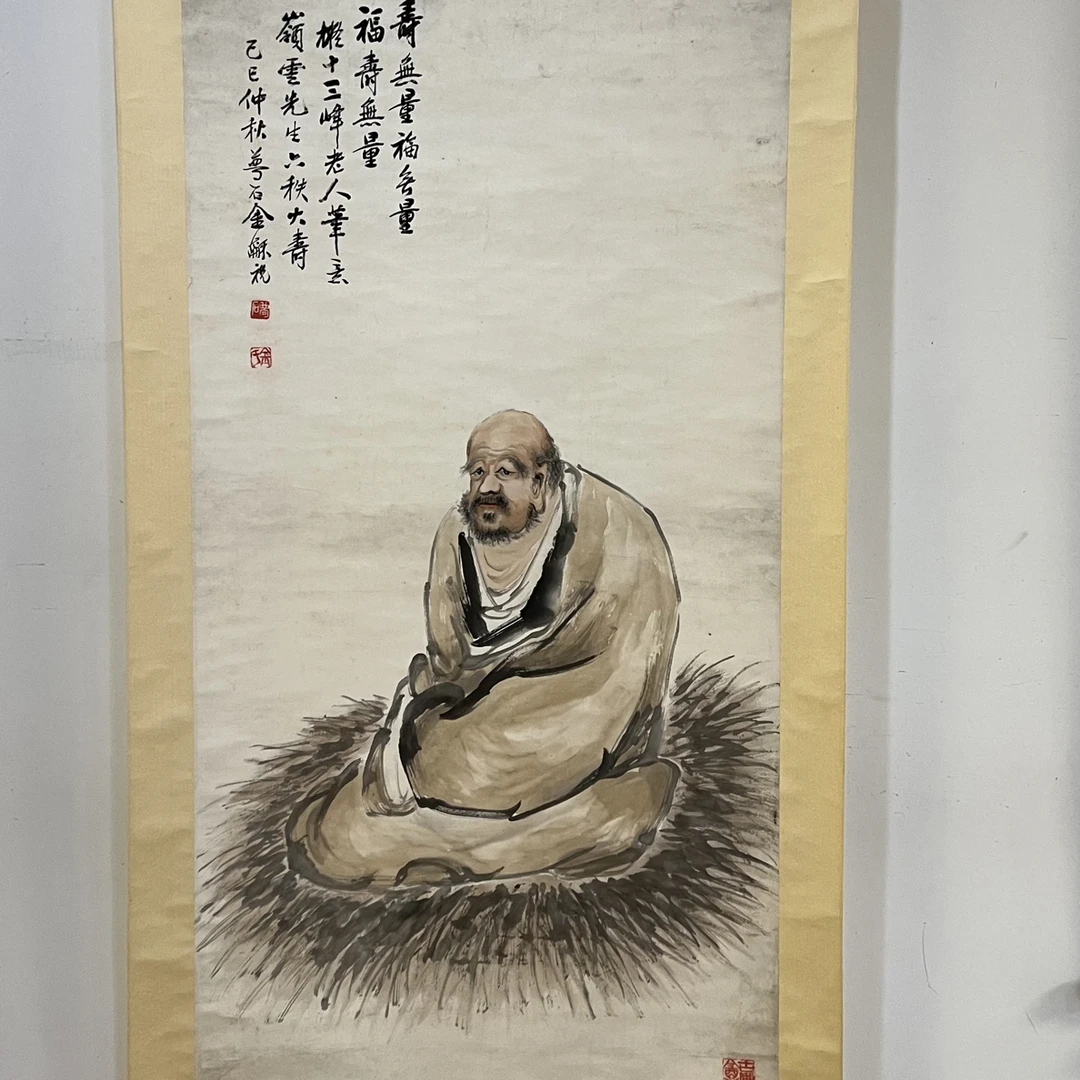 壽無量福无量
福壽無量
擬十三峰老人筆意
嶺雲先生六秩大壽
己巳仲秋夢石金龢祝